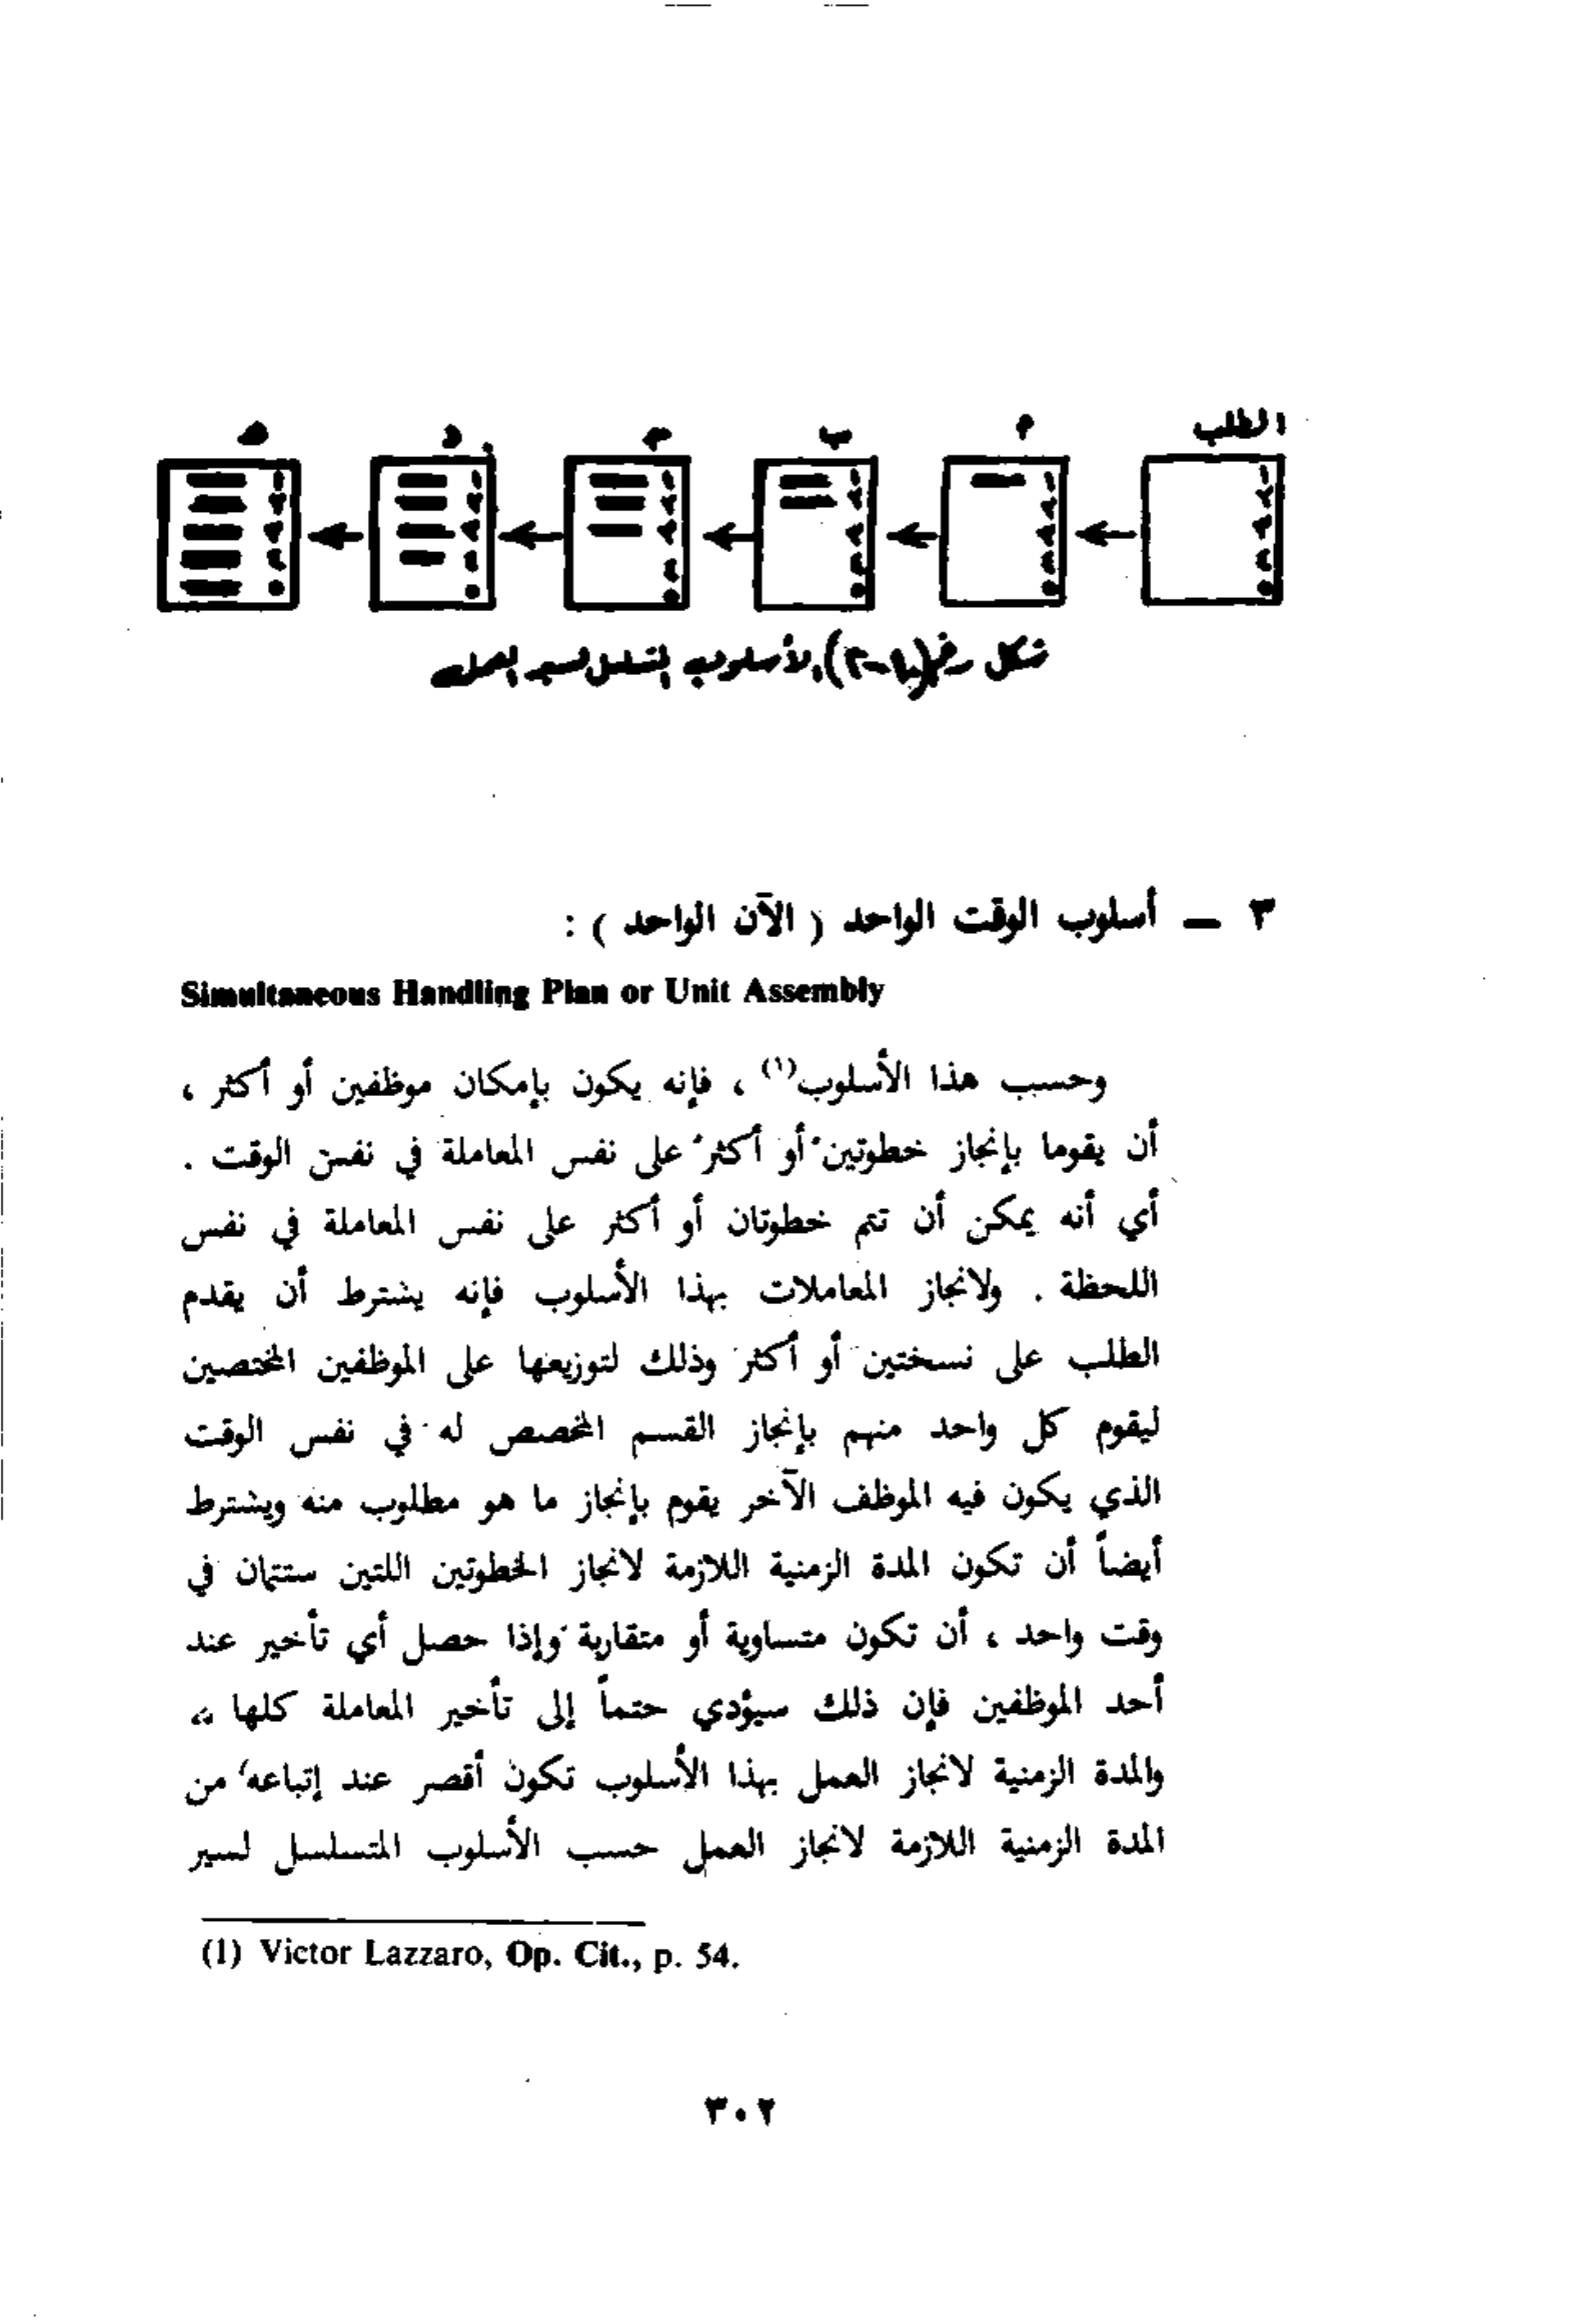 الطلب أ ب ج د هـ
١ ٢ ٣ ٤ ٥
شكل رقم (٨-٢) الأسلوب المتسلسل لسير العمل
٣ — أسلوب الوقت الواحد ( الآن الواحد ) :
Simultaneous Handling Plan or Unit Assembly
وحسب هذا الأسلوب(١) ، فإنه يكون بإمكان موظفين أو أكثر ،
أن يقوما بإنجاز خطوتين أو أكثر على نفس المعاملة في نفس الوقت .
أي أنه يمكن أن تتم خطوتان أو أكثر على نفس المعاملة في نفس
اللحظة . ولانجاز المعاملات بهذا الأسلوب فإنه يشترط أن يقدم
الطلب على نسختين أو أكثر وذلك لتوزيعها على الموظفين المختصين
ليقوم كل واحد منهم بإنجاز القسم المخصص له في نفس الوقت
الذي يكون فيه الموظف الآخر يقوم بإنجاز ما هو مطلوب منه ويشترط
أيضاً أن تكون المدة الزمنية اللازمة لانجاز الخطوتين اللتين ستتمان في
وقت واحد ، أن تكون متساوية أو متقاربة وإذا حصل أي تأخير عند
أحد الموظفين فإن ذلك سيؤدي حتماً إلى تأخير المعاملة كلها
والمدة الزمنية لانجاز العمل بهذا الأسلوب تكون أقصر عند إتباعه من
المدة الزمنية اللازمة لانجاز العمل حسب الأسلوب المتسلسل لسير
(1) Victor Lazzaro, Op. Cit., p. 54.
٣٠٢